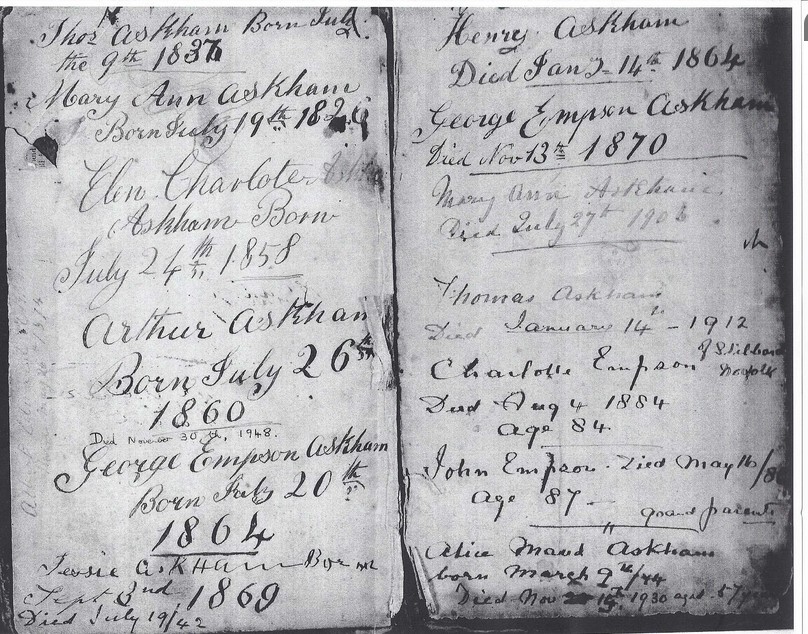 Thos Askham Born July
the 9th 1837
Mary Ann Askham
Born July 19th 182
Elen Charlote
Askham Born
July 24th 1858
Arthur Askham
Born July 26th
1860
Died November 30th, 1948.
George Empson Askham
Born July 20th
1864
Jessie Askham Born
Sept 3nd 1869
Died July 19/42
Henry Askham
Died Jany 14th 1864
George Empson Askham
Died Nov 13th 1870
Mary Ann Askham
Died July 27th 190
Thomas Askham
Died January 14th - 1912
Charlotte Empson of Stibbard
Norfolk
Died Aug 4 1884
age 84
John Empson. Died May 16/8
Age 87 -
" grand parents
Alice Maud Askham
born March 9th/74
Died Nov 15th, 1930 aged 57